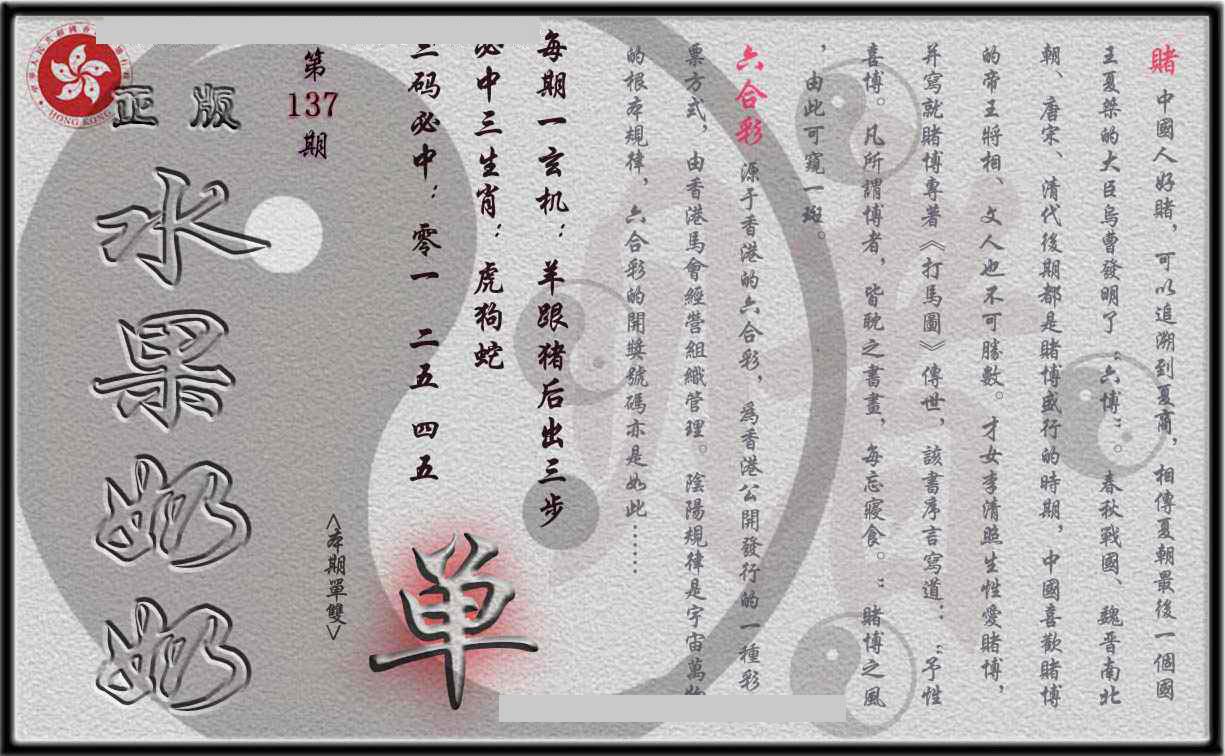 賭 中國人好賭，可以追溯到夏商，相傳夏朝最後一個國
王夏桀的大臣烏曹發明了“六博”。春秋戰國、魏晉南北
朝、唐宋、清代後期都是賭博盛行的時期，中國喜歡賭博
的帝王將相、文人也不可勝數。才女李清照生性愛賭博，
并寫就賭博專著《打馬圖》傳世，該書序言寫道：“予性
喜博。凡所謂博者，皆耽之書畫，每忘寢食。”賭博之風
，由此可窺一斑。
六合彩 源于香港的六合彩，為香港公開發行的一種彩
票方式，由香港馬會經營組織管理。陰陽規律是宇宙萬物
的根本規律，六合彩的開獎號碼亦是如此……
每期一玄机：羊跟猪后出三步
必中三生肖：虎狗蛇
三码必中：零一 二五 四五
单
<本期單雙>
第
137
期
正版
水果奶奶
HONG KONG